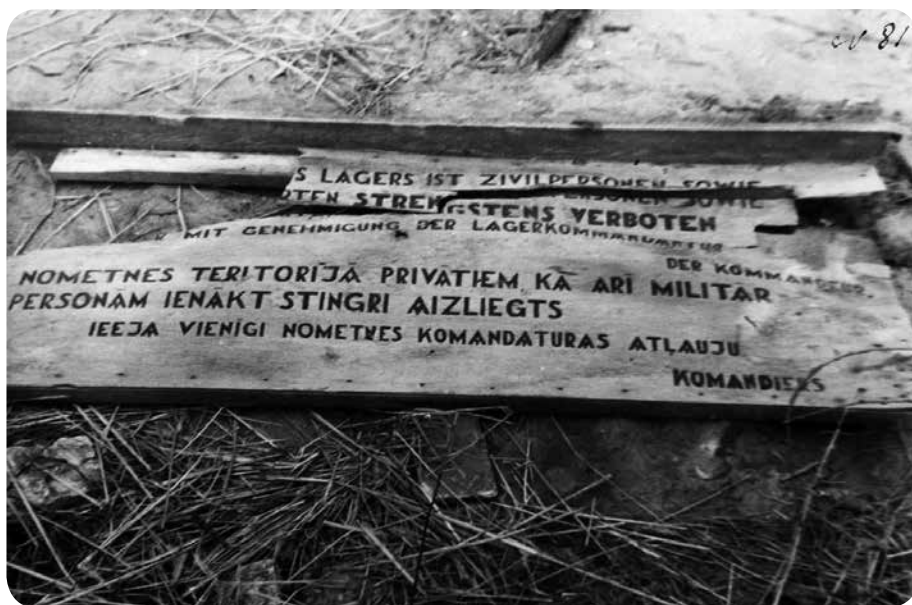 S LAGERS IST ZIVILPERSONEN SOWIE
RTEN STRENGSTENS VERBOTEN
MIT GENEHMIGUNG DER LAGERKOMMANDANTUR
DER KOMMANDEUR.
NOMETNES TERITORIJĀ PRIVĀTIEM KĀ ARĪ MILITĀR
PERSONĀM IENĀKT STINGRI AIZLIEGTS
IEEJA VIENĪGI NOMETNES KOMANDATURAS ATĻAUJU
KOMANDIERS